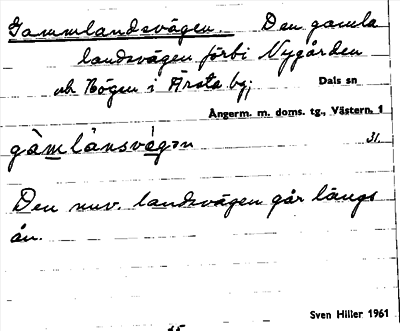 Gammlandsvägen. Den gamla
landsvägen förbi Nygården
och Högen i Årsta by;
Dals sn
Ångerm. m. doms. tg., Västern. 1
31.
gàmlánsvégən
Den nuv. landsvägen går längs
ån.
Sven Hiller 1961